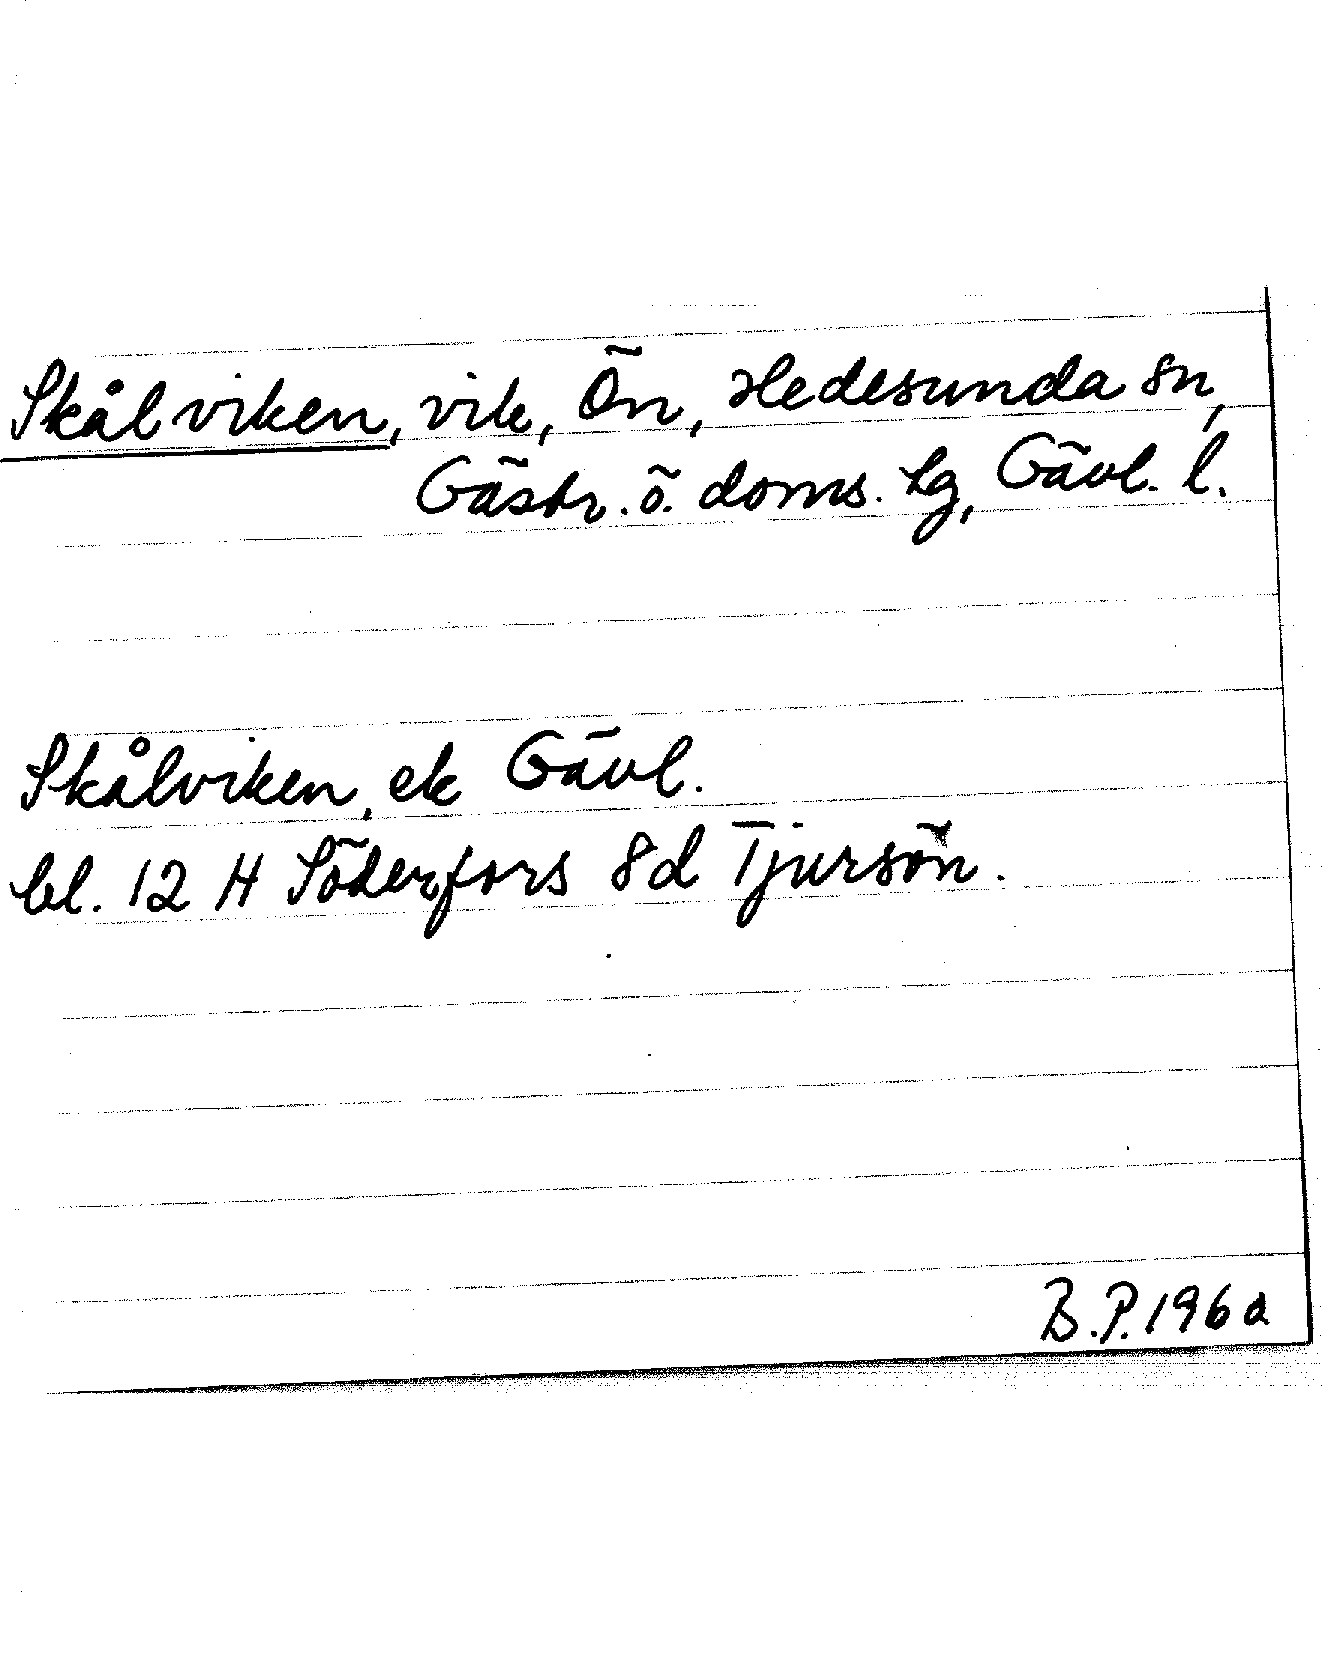 Skålviken, vik, Ön, Hedesunda sn,
Gästr. ö. doms. hg, Gävl. l.
Skålviken, ek Gävl.
bl. 12 H Söderfors 8d Tjursön.
B.P. 196a